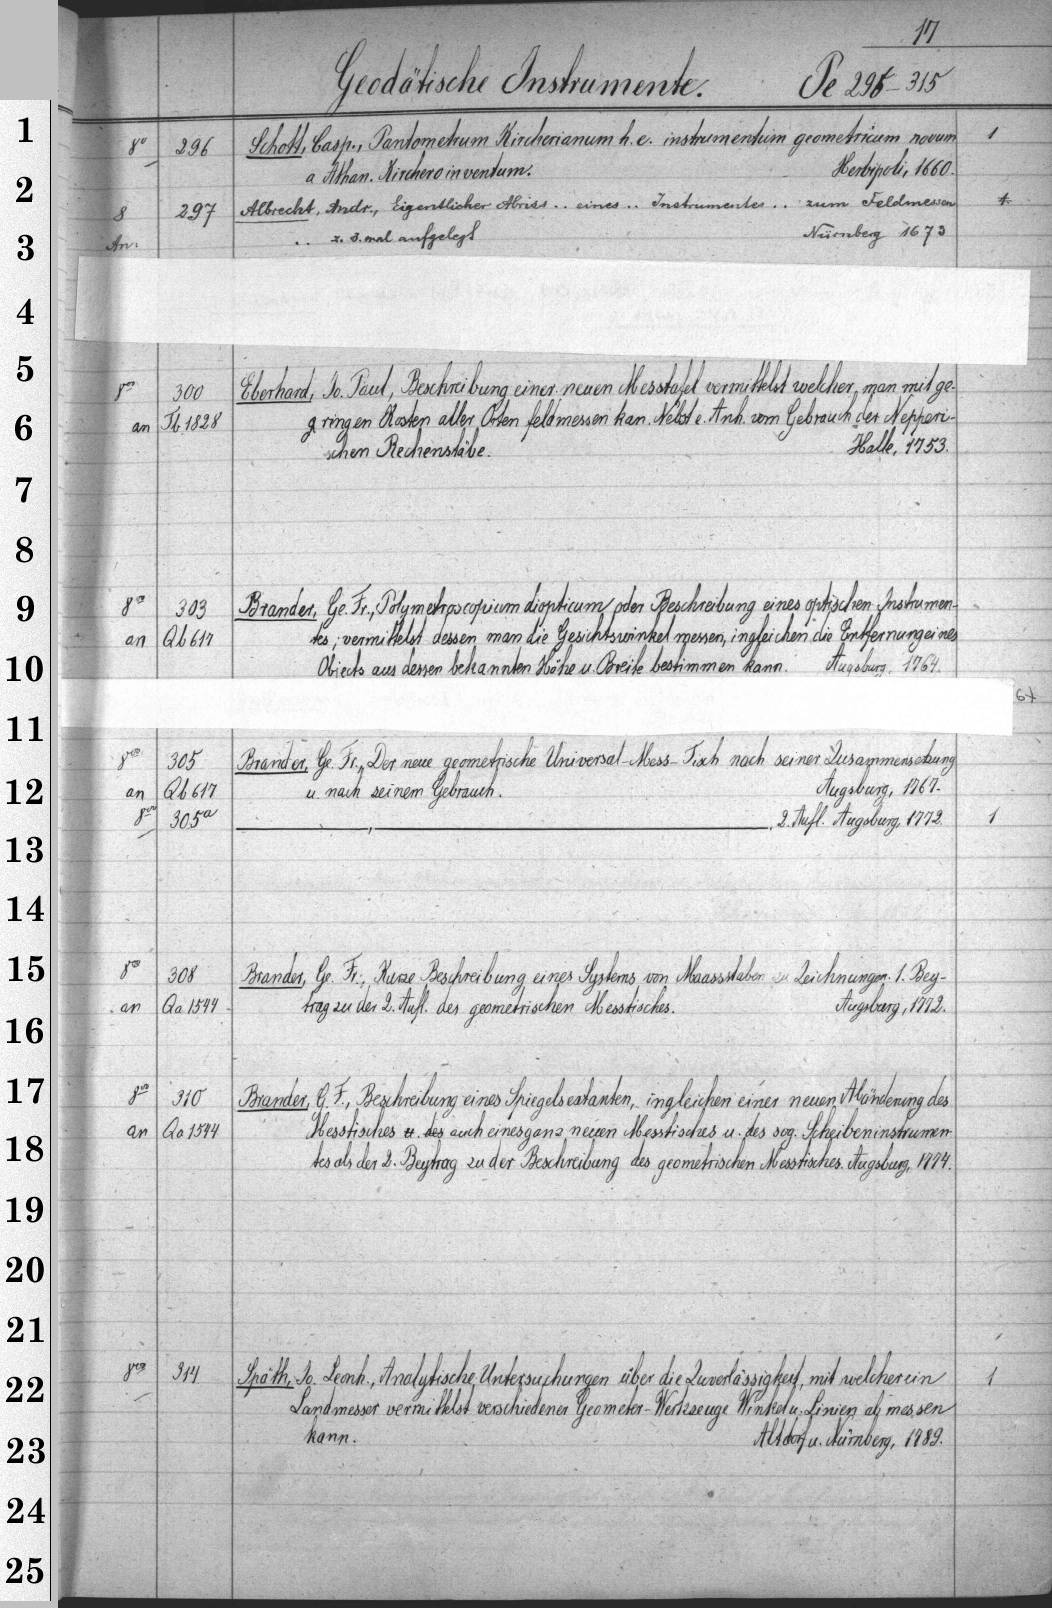 17
Geodätische Instrumente. Pe 296-315
1
8° 296 Schott, Casp., Pantometrum Kircherianum h. e. instrumentum geometricum novum 1
a Athan. Kirchero inventum. Herbipoli, 1660.
2
8 297 Albrecht, Andr., Eigentlicher Abriss .. eines .. Instrumentes .. zum Feldmessen
An: .. z. 3. mal aufgelegt Nürnberg 1673
3
4
5
8vo 300 Eberhard, Jo. Paul, Beschreibung einer neuen Messtafel vermittelst welcher, man mit ge-
6
an Tb 1828 ringen Kosten aller Orten feldmessen kan. Nebst e. Anh. vom Gebrauch der Nepperi-
schen Rechenstäbe. Halle, 1753.
7
8
9
8vo 303 Brander, Ge. Fr., Polymetroscopium dioptricum oder Beschreibung eines optischen Instrumen-
an Qb 617 tes, vermittelst dessen man die Gesichtswinkel messen, ingleichen die Entfernung eines
10
Objects aus dessen bekannten Höhe u. Breite bestimmen kann. Augsburg, 1764.
11
8vo 305 Brander, Ge. Fr., Der neue geometrische Universal-Mess-Tisch nach seiner Zusammensetzung
12
an Qb 617 u. nach seinem Gebrauch. Augsburg, 1767.
8vo 305a , 2. Aufl. Augsburg, 1772. 1
13
14
15
8vo 308 Brander, Ge. Fr., Kurze Beschreibung eines Systems von Maassstaben zu Zeichnungen. 1. Bey-
an Qa 1544 trag zu der 2. Aufl. des geometrischen Messtisches. Augsburg, 1772.
16
17
8vo 310 Brander, G. F., Beschreibung eines Spiegelsextanten, ingleichen einer neuen Abänderung des
an Qa 1544 Messtisches u. des auch eines ganz neuen Messtisches u. des sog. Scheibeninstrumen-
18
tes als der 2. Beytrag zu der Beschreibung des geometrischen Messtisches. Augsburg, 1774.
19
20
21
8vo 314 Späth, Jo. Leonh., Analytische Untersuchungen über die Zuverlässigkeit, mit welcher ein 1
22
Landmesser vermittelst verschiedener Geometer-Werkzeuge Winkel u. Linien abmessen
23
kann. Altdorf u. Nürnberg, 1789.
24
25